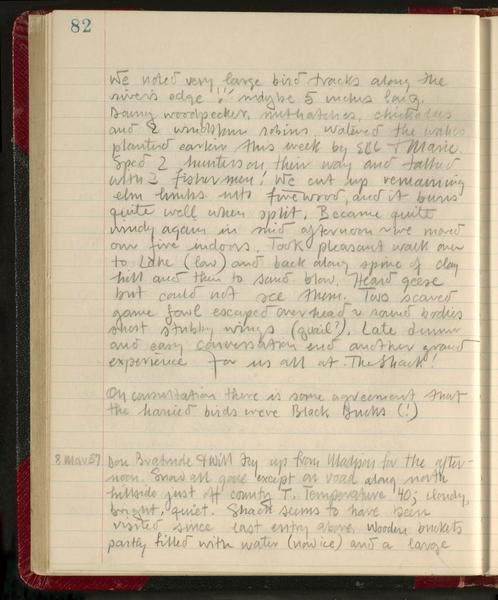 82
We noted very large bird tracks along the
river's edge !! maybe 5 inches long.
Downy woodpecker, nuthatches, chickadees
and 2 robins. Watered the
planted earlier this week by & Marie.
Sped 2 hunters on their way and talked
with 3 fishermen! We cut up remaining
elm limbs into firewood, and it burns
quite well when split. Became quite
windy again in mid afternoon we moved
our fire indoors. Took pleasant walk over
to Lake (low) and back along spine of clay
hill and then to sand blow. Heard geese
but could not see them. Two scared
game fowl escaped overhead round bodies
short stubby wings (quail?). Late dinner
and easy conversation end another grand
experience for us all at "The Shack"!
On consultation there is some agreement that
the harried birds were Black Ducks (!)
8 Mar 57 Don & Will Fry up from Madison for the after-
noon. Snow all gone except on road along north
hillside just off county T. Temperature 40; cloudy,
bright, quiet. Shack seems to have been
visited since last entry above. Wooden buckets
partly filled with water (now ice) and a large